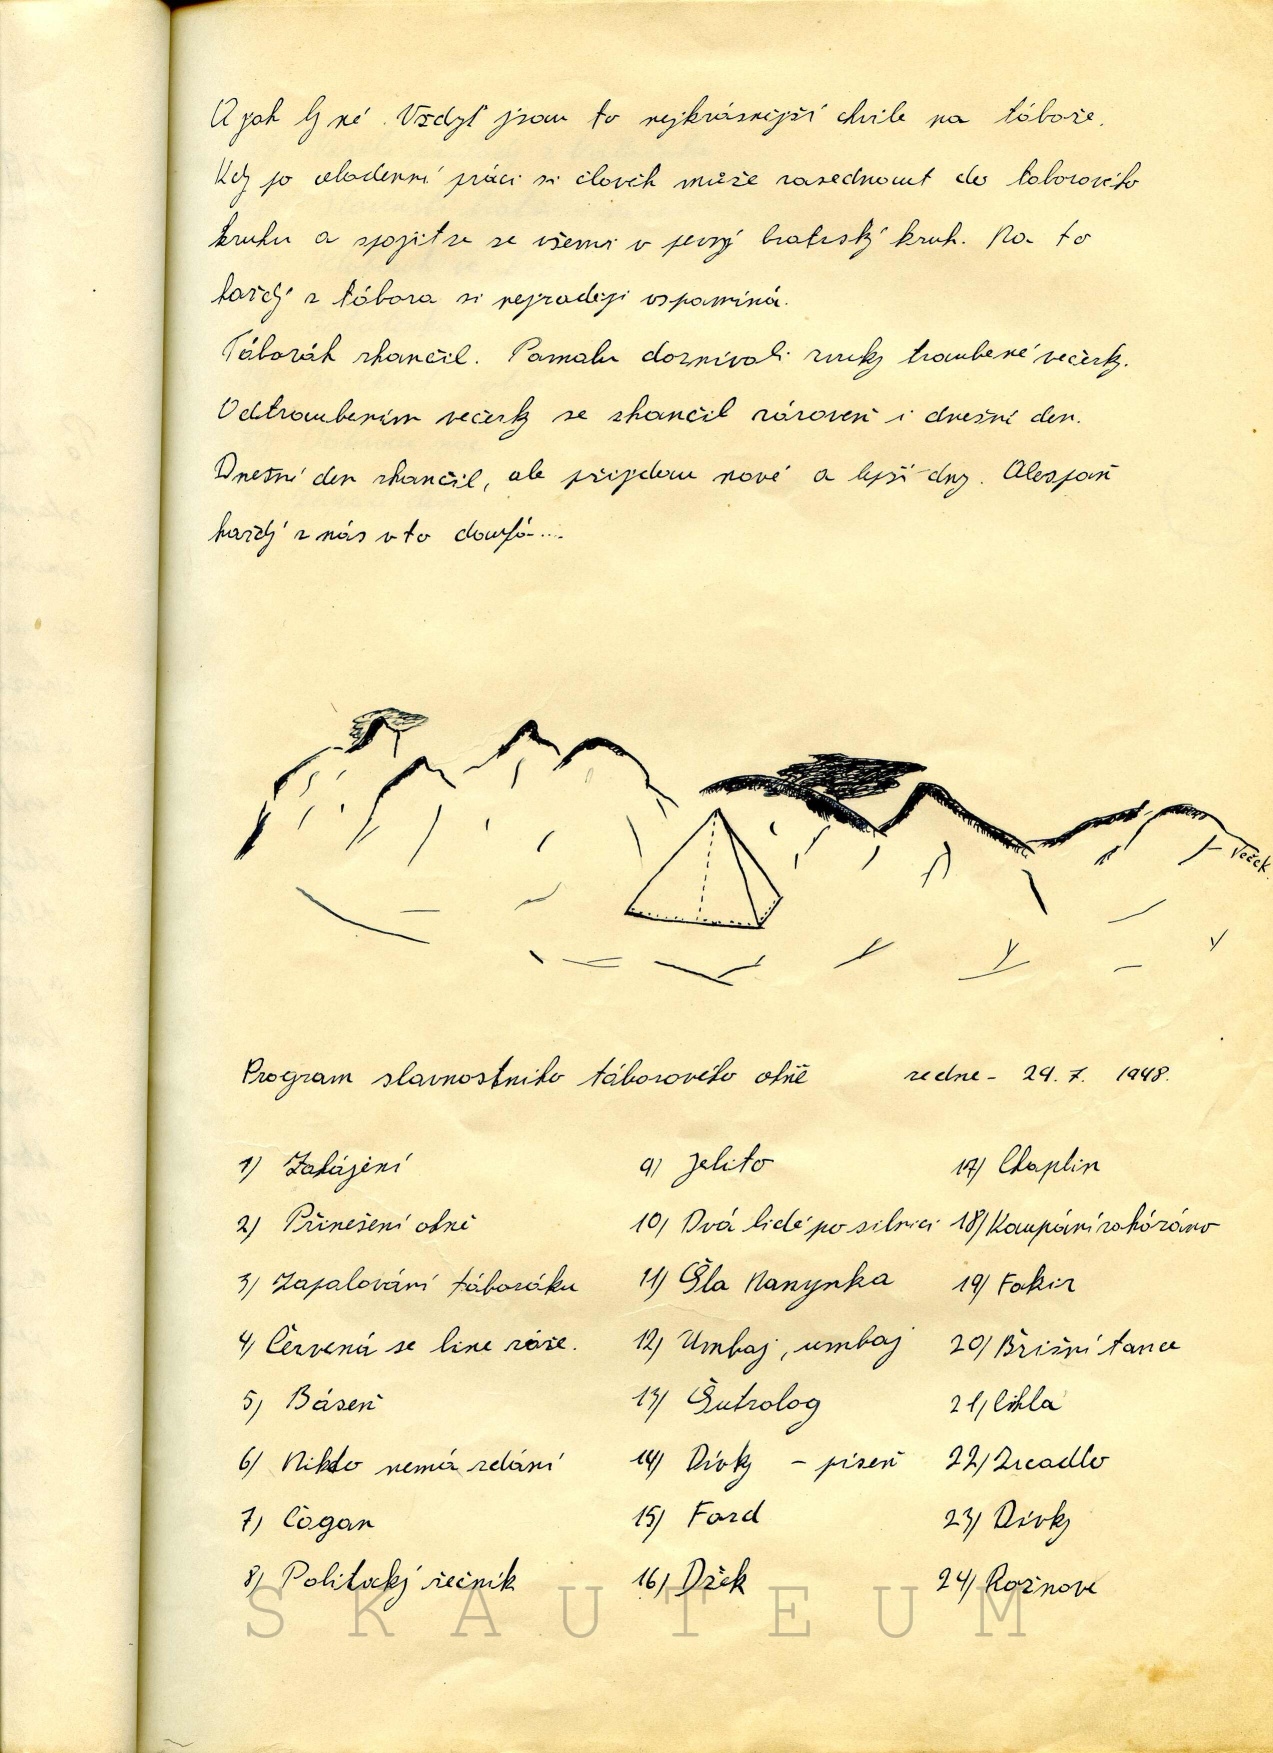 A jak by né. Vždyť jsou to nejkrásnější chvíle na táboře.
Kdy po celodenní práci si člověk může zasednout do táborového
kruhu a spojit se se všemi v pevný bratrský kruh. Na to
každý z tábora si nejraději vspomíná.
Táborák skončil. Pomalu doznívali zvuky troubené večerky.
Odtroubením večerky se skončil zároveň i dnešní den.
Dnešní den skončil, ale přijdou nové a lepší dny. Alespoň
každý z nás v to doufá....
Veček.
Program slavnostního táborového ohně 29. 7. 1948.
1) Zahájení
2) Přinešení ohně
3) Zapalování táboráku
4) Červená se line záře.
5) Báseň
6) Nikdo nemá zdání
7) Cogan
8) Politický řečník
9) Jelito
10) Dvá lidé po silnici
11) Šla Nanynka
12) Umbaj, umbaj
13) Šutrolog
14) Dívky - píseň
15) Ford
16) Džek
17) Chaplin
18)
19) Fakir
20) Břišní tance
21) Cihla
22) Zrcadlo
23) Dívky
24) Rožnove
SKAUTEUM